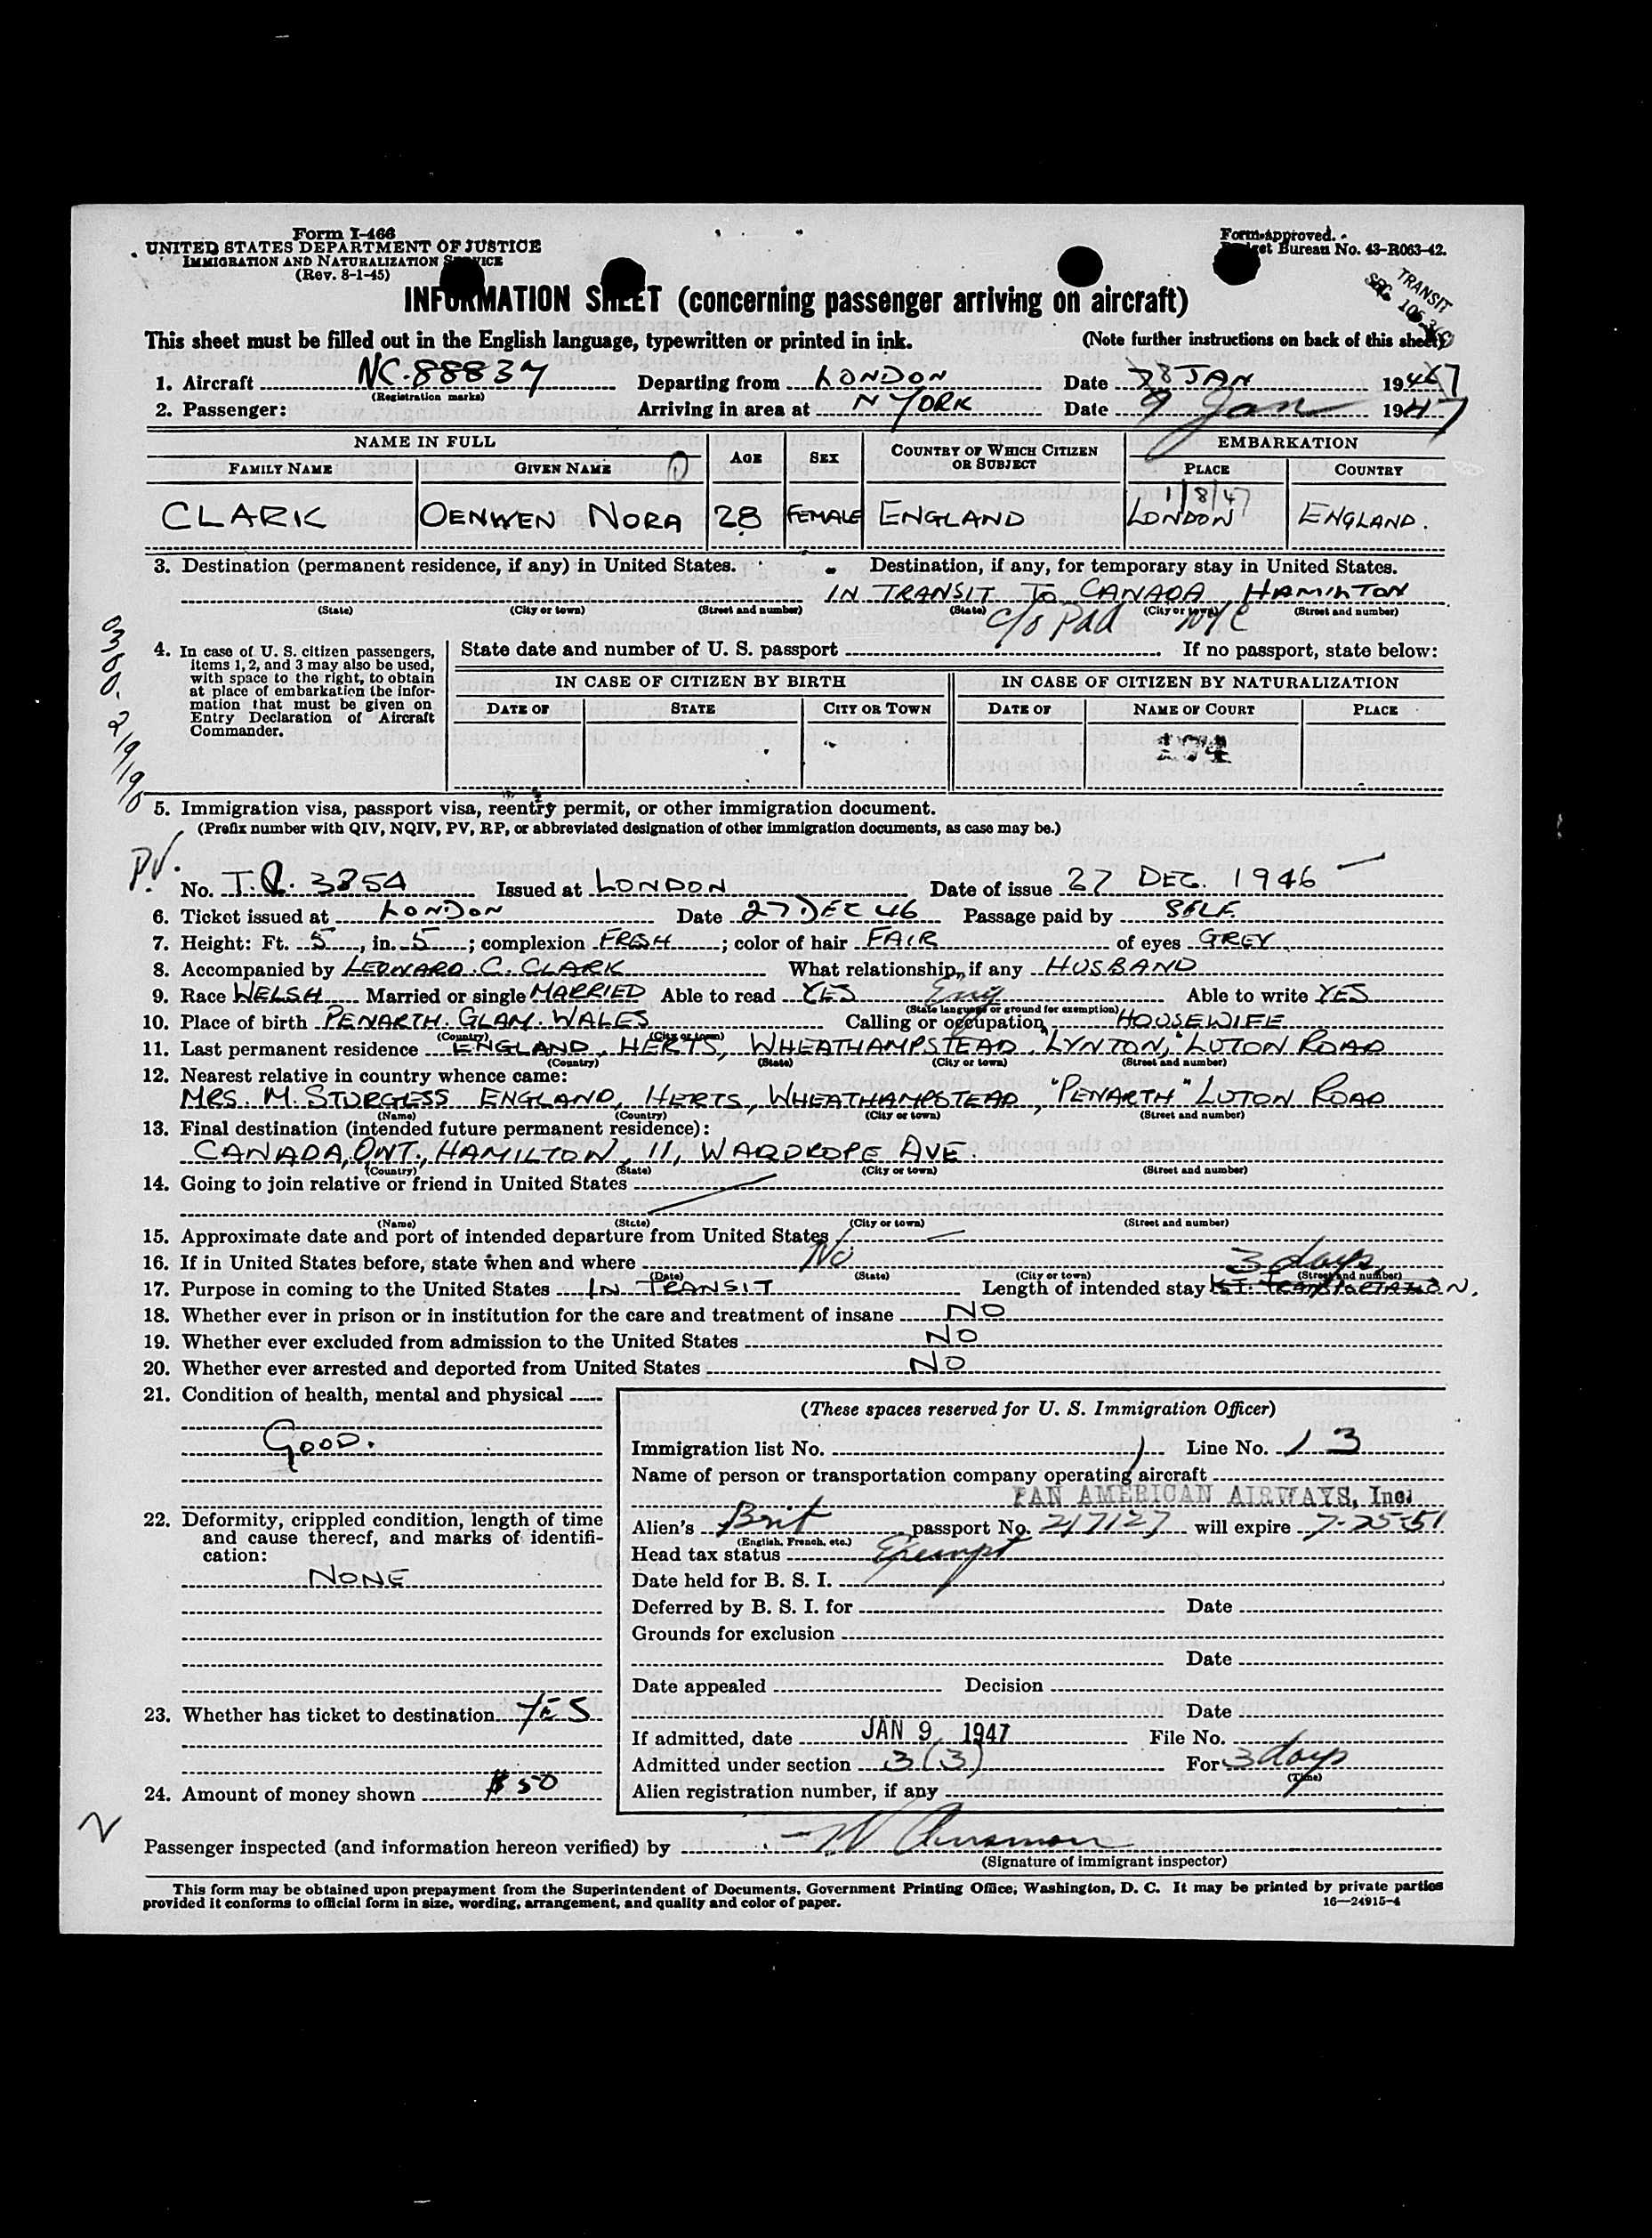 Form I-466
UNITED STATES DEPARTMENT OF JUSTICE
IMMIGRATION AND NATURALIZATION SERVICE
(Rev. 8-1-45)
Form approved.
Budget Bureau No. 43-R063-42.
TRANSIT
INFORMATION SHEET (concerning passenger arriving on aircraft)
This sheet must be filled out in the English language, typewritten or printed in ink. (Note further instructions on back of this sheet)
1. Aircraft NC-88837 Departing from LONDON Date 8 JAN 1947
(Registration marks)
2. Passenger: Arriving in area at N YORK Date 9 Jan 1947
NAME IN FULL AGE SEX COUNTRY OF WHICH CITIZEN OR SUBJECT EMBARKATION
FAMILY NAME GIVEN NAME PLACE COUNTRY
1/8/47
CLARK OENWEN NORA 28 FEMALE ENGLAND LONDON ENGLAND.
3. Destination (permanent residence, if any) in United States. Destination, if any, for temporary stay in United States.
IN TRANSIT TO CANADA, HAMILTON
(State) (City or town) (Street and number) (State) (City or town) (Street and number)
c/o Paa NYC
4. In case of U. S. citizen passengers, items 1, 2, and 3 may also be used, with space to the right, to obtain at place of embarkation the information that must be given on Entry Declaration of Aircraft Commander.
State date and number of U. S. passport If no passport, state below:
IN CASE OF CITIZEN BY BIRTH IN CASE OF CITIZEN BY NATURALIZATION
DATE OF STATE CITY OR TOWN DATE OF NAME OF COURT PLACE
174
5. Immigration visa, passport visa, reentry permit, or other immigration document.
(Prefix number with QIV, NQIV, PV, RP, or abbreviated designation of other immigration documents, as case may be.)
P.V.
No. T.R. 3854 Issued at LONDON Date of issue 27 DEC. 1946
6. Ticket issued at LONDON Date 27 DEC 46 Passage paid by SELF
7. Height: Ft. 5, in. 5; complexion FRESH; color of hair FAIR of eyes GREY
8. Accompanied by LEONARD. C. CLARK What relationship, if any HUSBAND
9. Race WELSH Married or single MARRIED Able to read YES Eng Able to write YES
(State language or ground for exemption)
10. Place of birth PENARTH. GLAM. WALES Calling or occupation HOUSEWIFE
(Country) (City or town)
11. Last permanent residence ENGLAND, HERTS, WHEATHAMPSTEAD, "LYNTON," LUTON ROAD
(Country) (State) (City or town) (Street and number)
12. Nearest relative in country whence came:
MRS. M. STURGESS ENGLAND, HERTS, WHEATHAMPSTEAD, "PENARTH" LUTON ROAD
(Name) (Country) (City or town) (Street and number)
13. Final destination (intended future permanent residence):
CANADA, ONT., HAMILTON, 11, WARDROPE AVE.
(Country) (State) (City or town) (Street and number)
14. Going to join relative or friend in United States
(Name) (State) (City or town) (Street and number)
15. Approximate date and port of intended departure from United States
16. If in United States before, state when and where No
(Date) (State) (City or town) (Street and number)
3 days
17. Purpose in coming to the United States IN TRANSIT Length of intended stay 1ST. TRANSPORTATION.
18. Whether ever in prison or in institution for the care and treatment of insane NO
19. Whether ever excluded from admission to the United States NO
20. Whether ever arrested and deported from United States NO
21. Condition of health, mental and physical
GOOD.
22. Deformity, crippled condition, length of time and cause thereof, and marks of identification:
NONE
23. Whether has ticket to destination YES
24. Amount of money shown $50
(These spaces reserved for U. S. Immigration Officer)
Immigration list No. 1 Line No. 13
Name of person or transportation company operating aircraft
PAN AMERICAN AIRWAYS, Inc.
Alien's Brit passport No. 217127 will expire 7-25-51
(English, French, etc.)
Head tax status Exempt
Date held for B. S. I.
Deferred by B. S. I. for Date
Grounds for exclusion
Date
Date appealed Decision
Date
If admitted, date JAN 9 1947 File No.
Admitted under section 3(3) For 3 days
(Time)
Alien registration number, if any
Passenger inspected (and information hereon verified) by
(Signature of immigrant inspector)
This form may be obtained upon prepayment from the Superintendent of Documents, Government Printing Office, Washington, D. C. It may be printed by private parties
provided it conforms to official form in size, wording, arrangement, and quality and color of paper. 16—24915-4